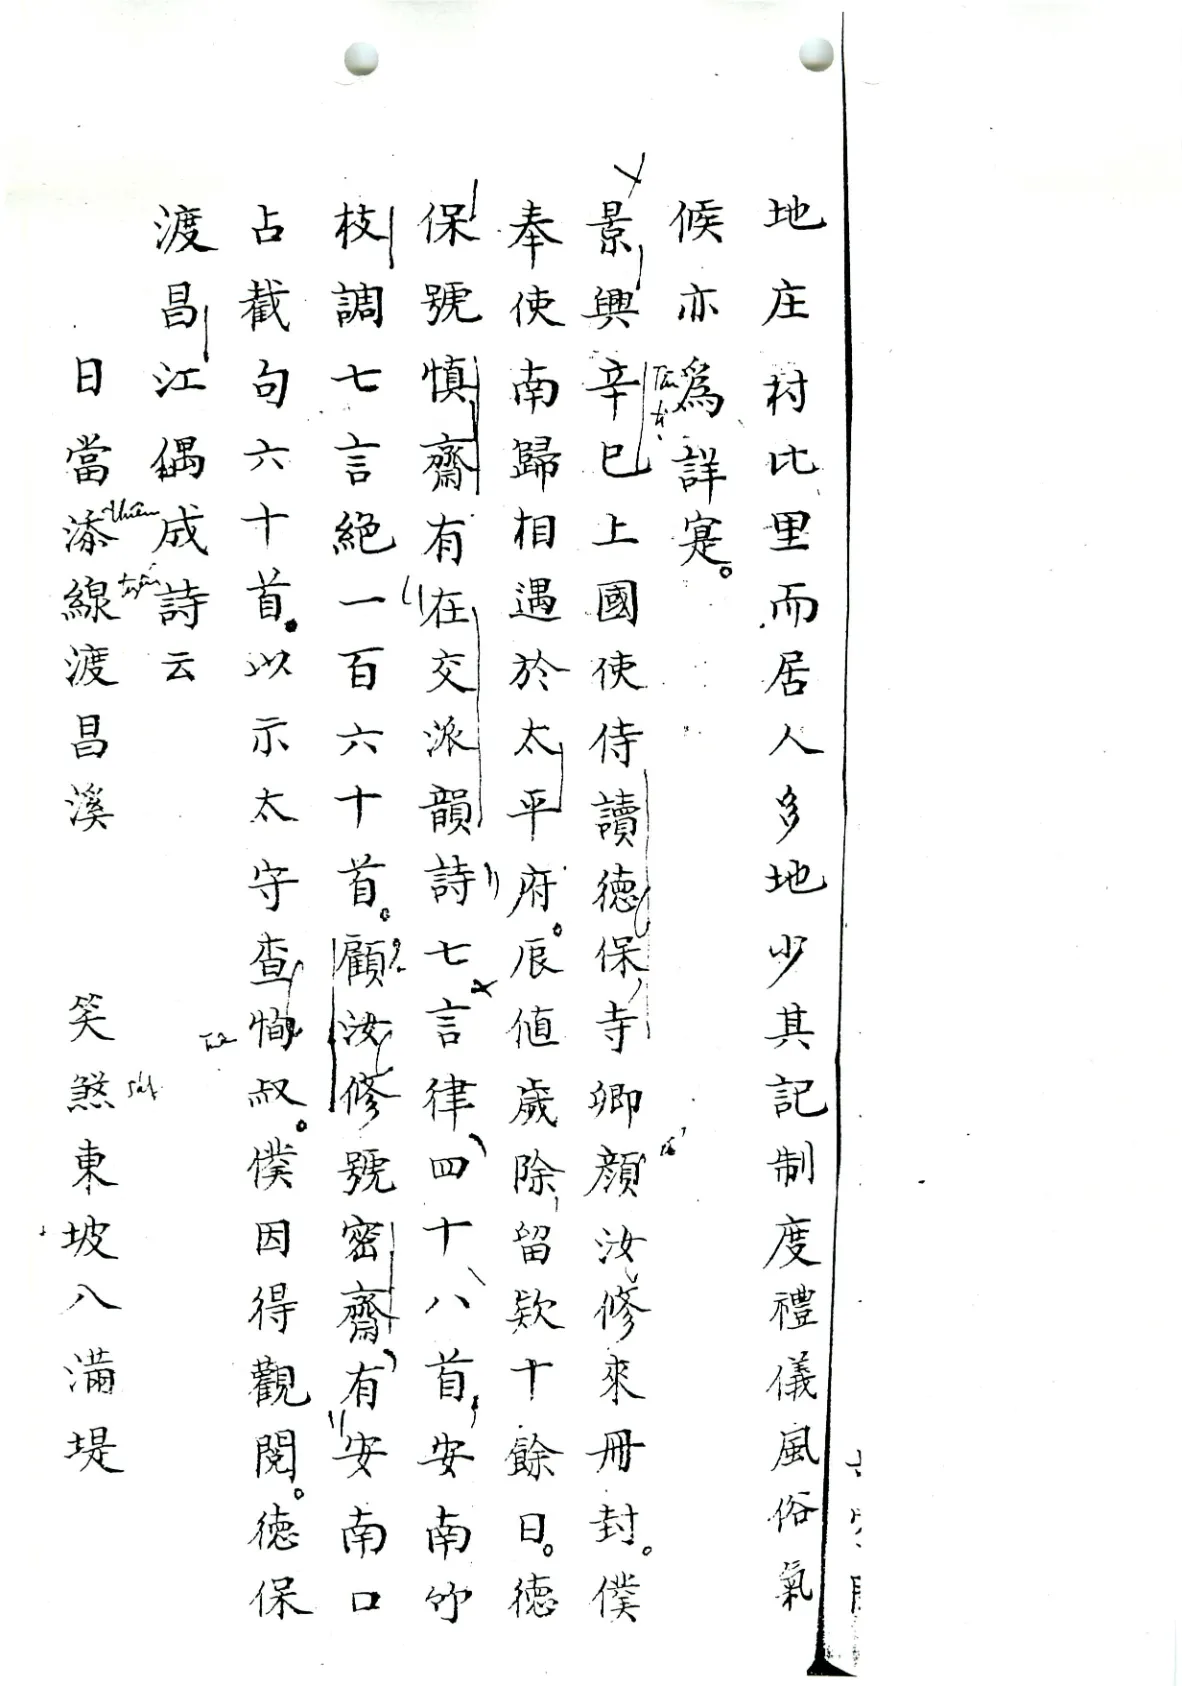 地庄村比里而居人多地少其記制度禮儀風俗氣
候亦爲詳寔。
景興辛巳上國使侍讀德保寺卿顔汝修來冊封。僕
奉使南歸相遇於太平府。辰値歲除留欵十餘日。德
保號慎齋有在交派韻詩七言律四十八首安南竹
枝調七言絕一百六十首。顧汝修號密齋有安南口
占截句六十首。以示太守查恂叔。僕因得觀閱。德保
渡昌江偶成詩云
日當添線渡昌溪 笑煞東坡八滿堤